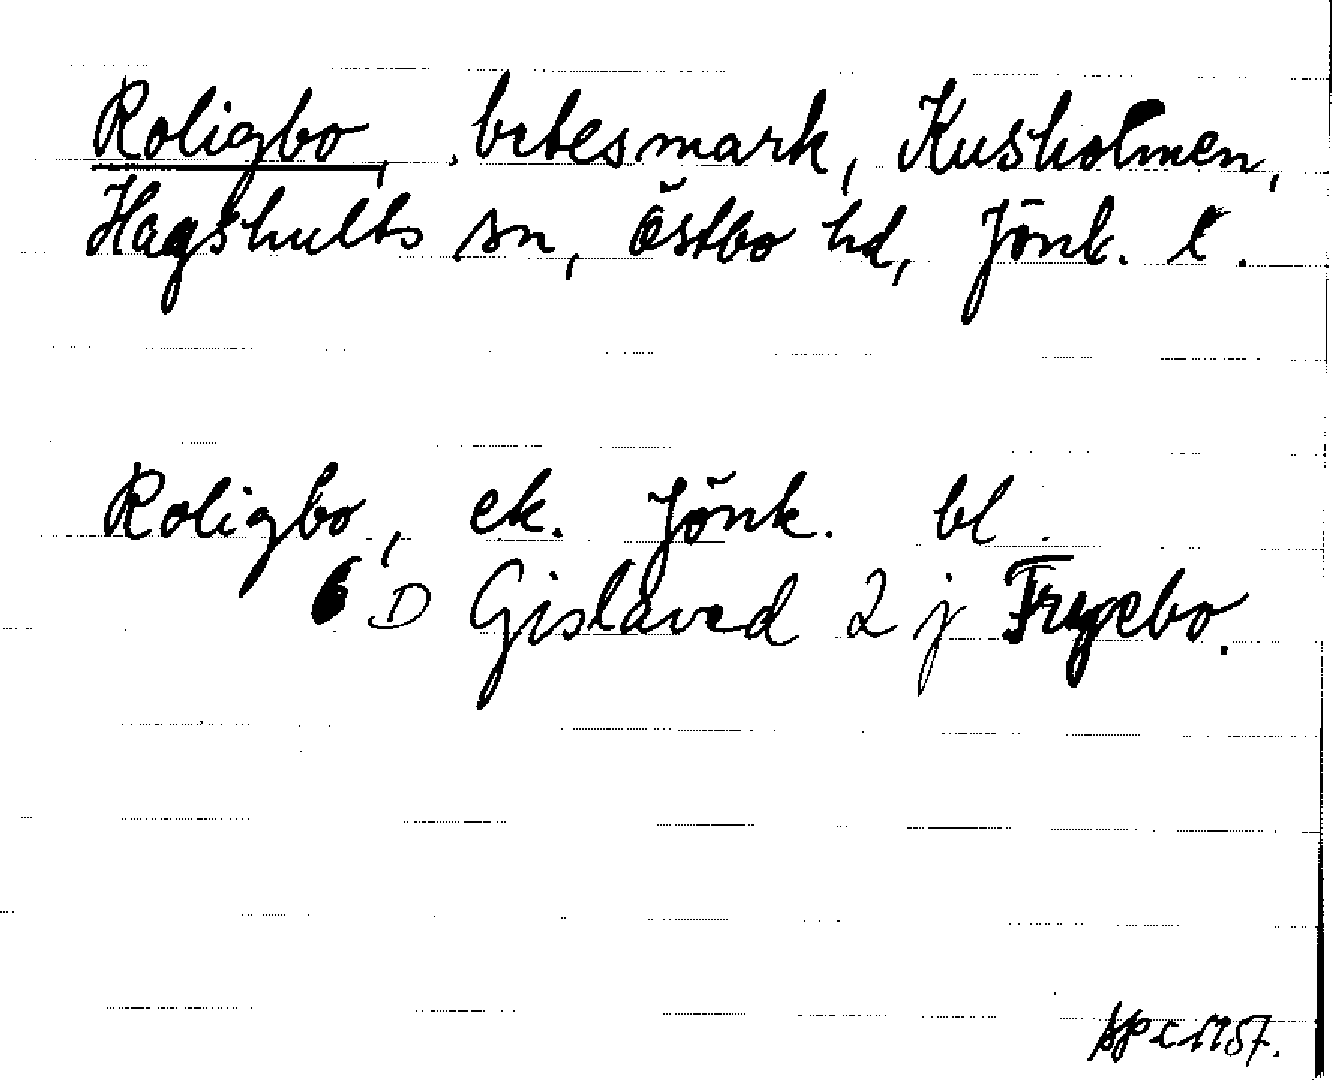 Roligbo, betesmark, Kusholmen,
Hagshults sn, Östbo hd, Jönk. l.
Roligbo, ek. Jönk. bl
6 D Gislaved 2 j Frygebo.
1957.